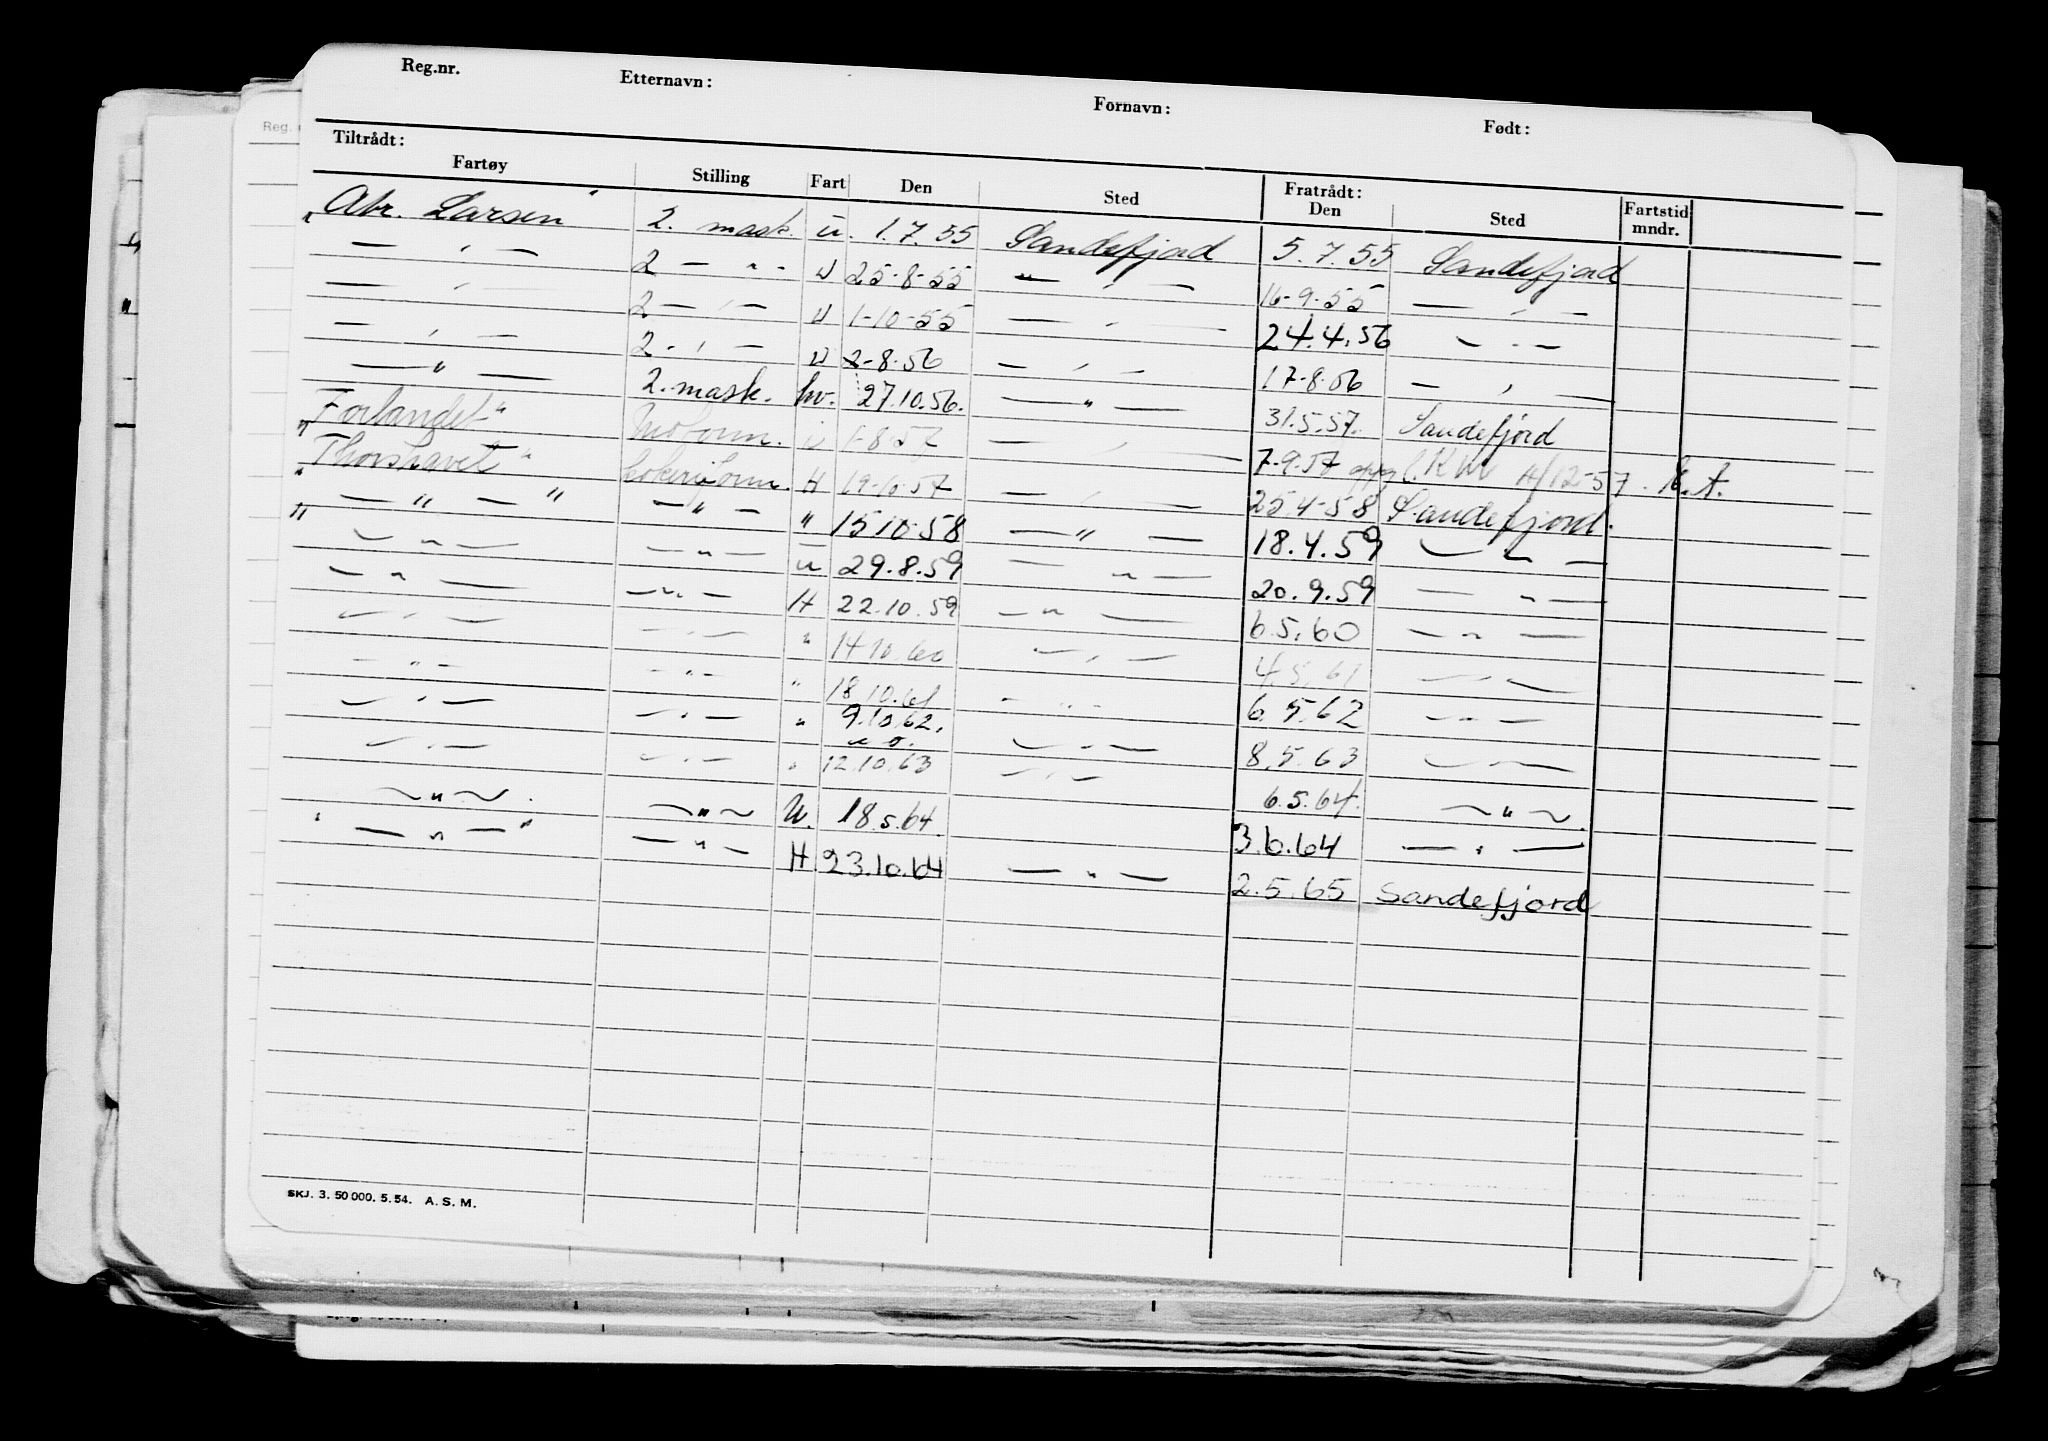 Reg.nr. Etternavn: Fornavn: Født:
Tiltrådt: Fratrådt:
Fartøy Stilling Fart Den Sted Den Sted Fartstid mndr.
"Abr. Larsen" 2. mask. u. 1.7.55 Sandefjord 5.7.55 Sandefjord
— " — 2 — " — U 25-8-55 — " — 16-9-55 — " —
— " — 2 — " — U 1-10-55 — " — 24.4.56 — " —
— " — 2 — " — U 2-8-56 — " — 17-8-56 — " —
— " — 2. mask. hv. 27.10.56. — " — 31.5.57. Sandefjord
"Forlandet" U 1-8-57 — " — 7-9-57 4/12-57
"Thorshavet" H 19-10-57 — " — 25-4-58 Sandefjord.
" — " — " — " — " 15 10 58 — " — 18.4.59 — " —
— " — — " — u 29.8.59 — " — 20.9.59 — " —
— " — — " — H 22.10.59 — " — 6.5.60 — " —
— " — — " — " 14.10.60 — " — 4.5.61 — " —
— " — — " — " 18.10.61 — " — 6.5.62 — " —
— " — — " — " 9.10.62. — " — 8.5.63 — " —
— " — — " — " 12.10.63 — " — 6.5.64. — " —
— " — . — " — U. 18.5.64. 3.6.64 — " —
" — " — " — " — H 23.10.64 — " — 2.5.65 Sandefjord
SKJ. 3. 50 000. 5. 54. A. S. M.